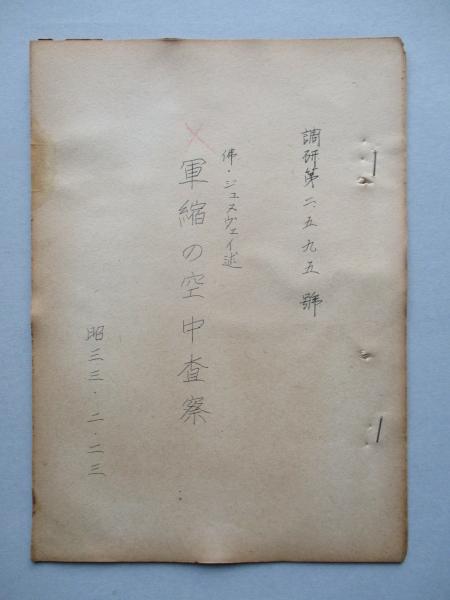 調研第二、五九五號
佛・ジュスヴェイ述
軍縮の空中査察
昭三三・二・二三